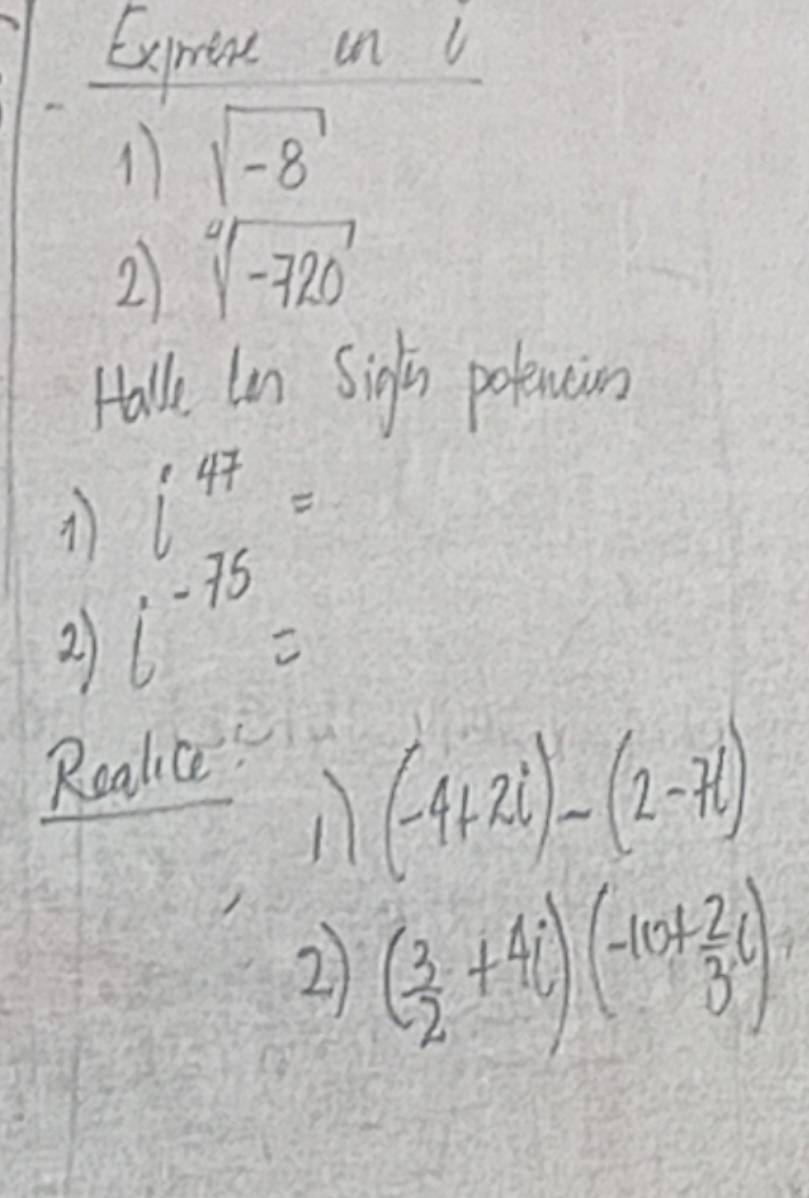 Exprese en i
1) √-8
2) ∜-720
Halle las Sigtes potencias
1) i^47 =
2) i^-75 =
Realice:
1) (-4+2i)-(2-7i)
2) (3/2 + 4i)(-10+2/3 i)